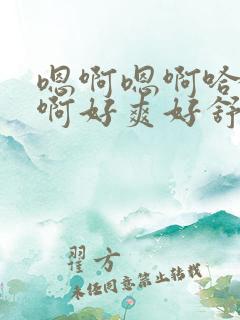 嗯啊嗯啊哈
啊好爽好舒
翟方
未经同意禁止转载